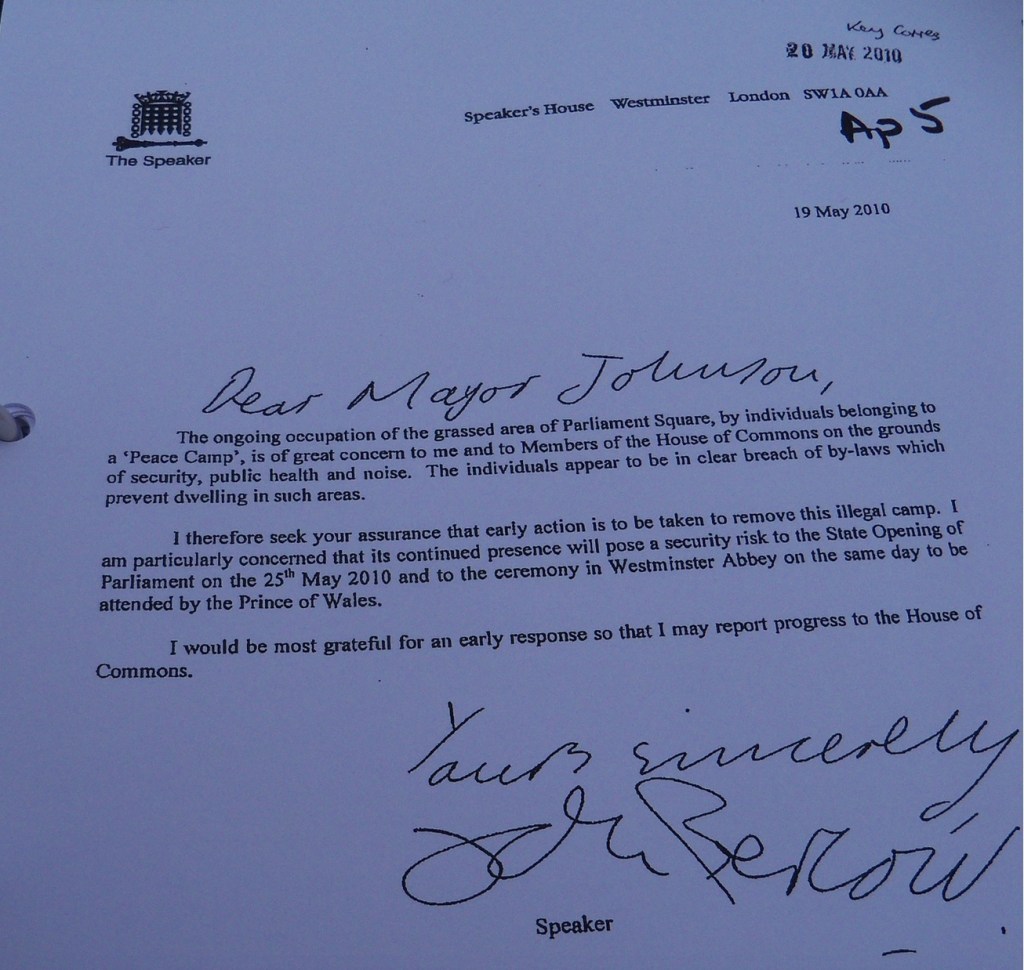 Key Corres
20 MAY 2010
Speaker's House Westminster London SW1A 0AA
Ap 5
The Speaker
19 May 2010
Dear Mayor Johnson,
The ongoing occupation of the grassed area of Parliament Square, by individuals belonging to
a 'Peace Camp', is of great concern to me and to Members of the House of Commons on the grounds
of security, public health and noise. The individuals appear to be in clear breach of by-laws which
prevent dwelling in such areas.
I therefore seek your assurance that early action is to be taken to remove this illegal camp. I
am particularly concerned that its continued presence will pose a security risk to the State Opening of
Parliament on the 25th May 2010 and to the ceremony in Westminster Abbey on the same day to be
attended by the Prince of Wales.
I would be most grateful for an early response so that I may report progress to the House of
Commons.
Yours sincerely
John Bercow
Speaker